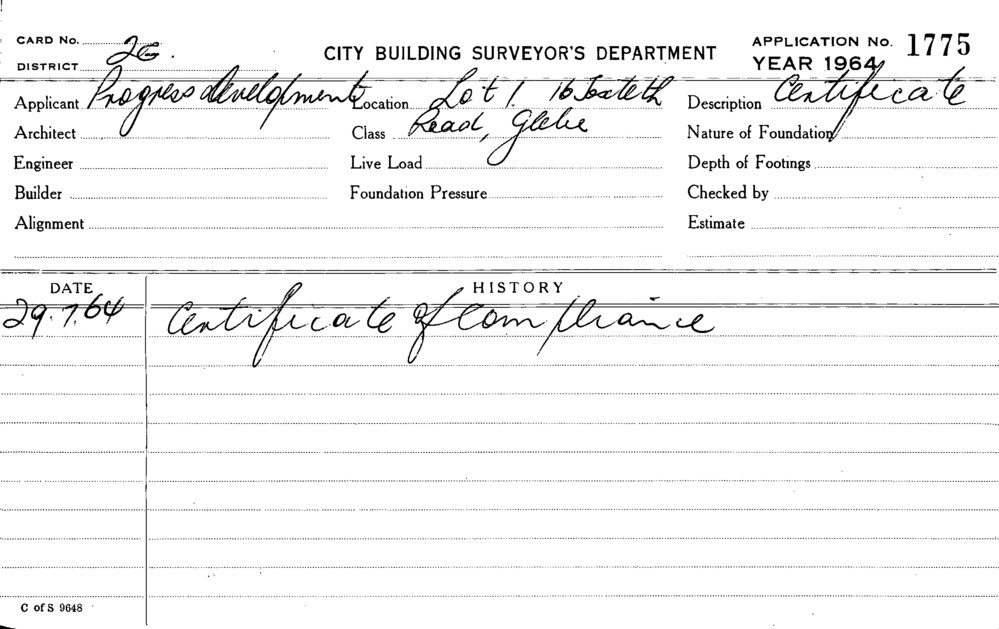 CARD No.
DISTRICT 2G.
CITY BUILDING SURVEYOR'S DEPARTMENT
APPLICATION No. 1775
YEAR 1964
Applicant Progress developments Location Lot 1. 16 Toxteth Description Certificate
Architect Class Road, Glebe Nature of Foundation
Engineer Live Load Depth of Footings
Builder Foundation Pressure Checked by
Alignment Estimate
DATE HISTORY
29.7.64 Certificate of Compliance
C of S 9648